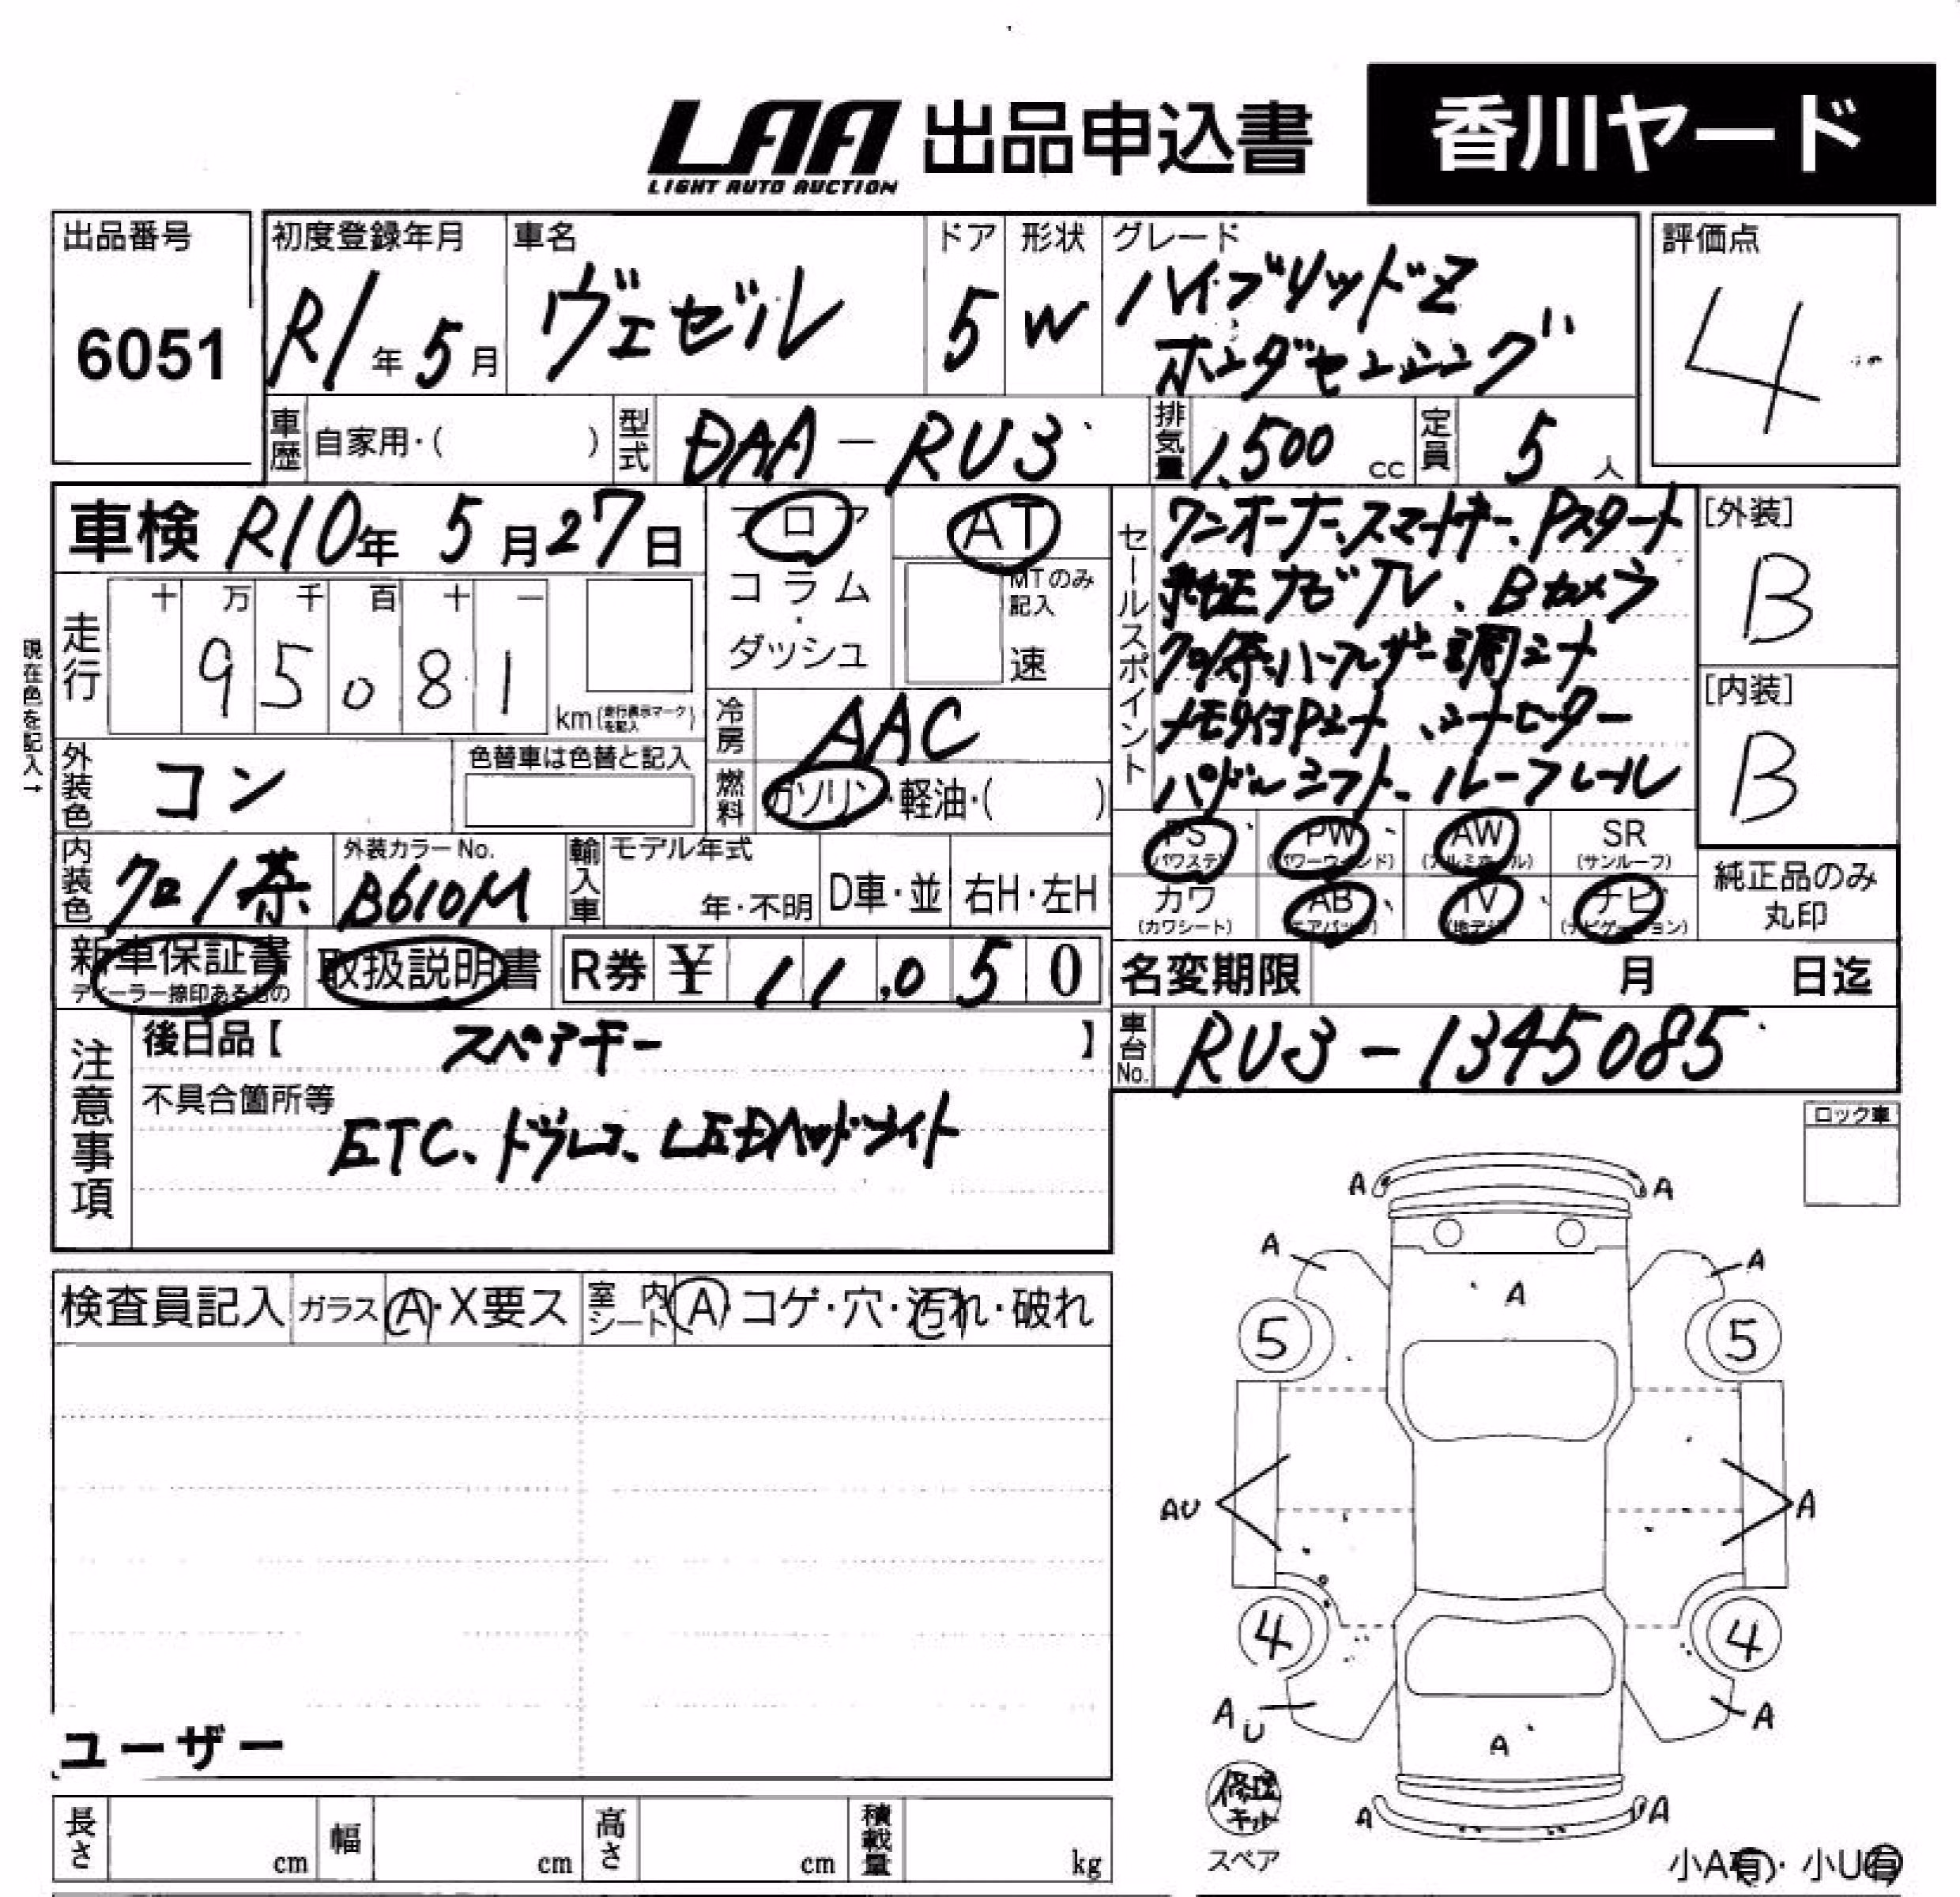 LAA 出品申込書 香川ヤード
LIGHT AUTO AUCTION
出品番号 初度登録年月 車名 ドア 形状 グレード 評価点
6051 R1年5月 ヴェゼル 5 W ハイブリッドZ 4
ホンダセンシング
車歴 自家用・( ) 型式 DAA-RU3 排気量 1,500 cc 定員 5人
車検 R10年 5月27日 フロア AT
コラム・ダッシュ MTのみ記入 速
走行 十 万 千 百 十 一
95081 km(走行表示マークを記入)
現在色を記入↑
冷房 AAC
外装色 コン 色替車は色替と記入 燃料 ガソリン・軽油・( )
内装色 クロ/茶 外装カラーNo. B610M 輸入車 モデル年式 年・不明 D車・並 右H・左H
セールスポイント
ワンオーナー、スマートキー、Pスタート
純正ナビTV、Bカメラ
クロ/茶ハーフレザー調シート
メモリ付Pシート、シートヒーター
パドルシフト、ルーフレール
[外装] B
[内装] B
PS (パワステ) PW (パワーウィンド) AW (アルミホイル) SR (サンルーフ)
カワ (カワシート) AB (エアバッグ) TV (地デジ) ナビ (ナビゲーション)
純正品のみ丸印
新車保証書 取扱説明書 R券 ¥ 11,050
ディーラー捺印あるもの
名変期限 月 日迄
注意事項
後日品【 スペアキー 】
不具合箇所等
ETC、ドラレコ、LEDヘッドライト
車台No. RU3-1345085
ロック車
検査員記入 ガラス A・X要ス 室内シート A・コゲ・穴・汚れ・破れ
A A
A A
A
5 5
AU A
4 4
AU A
A
A A
ユーザー
修理キット
スペア
小A有・小U有
長さ cm 幅 cm 高さ cm 積載量 kg